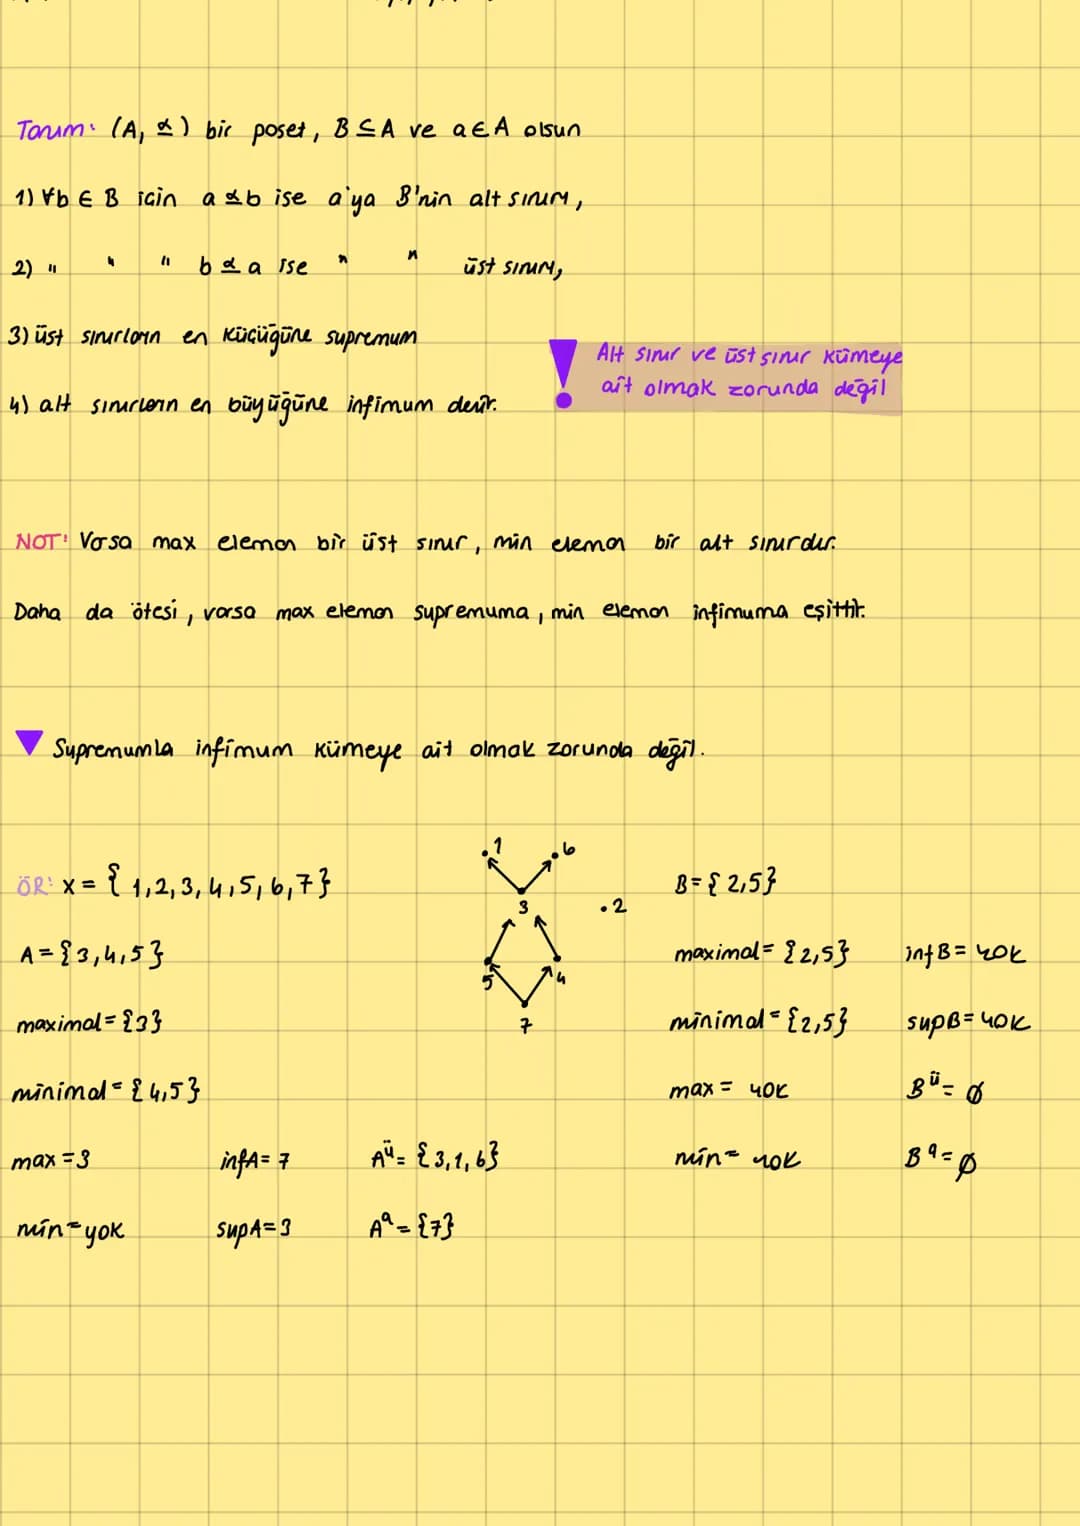 Tanım: (A, ⪯) bir poset, B ⊆ A ve a ∈ A olsun
1) ∀b ∈ B için a ⪯ b ise a'ya B'nin alt sınırı,
2) " " " b ⪯ a ise " " üst sınırı,
3) üst sınırların en küçüğüne supremum
4) alt sınırların en büyüğüne infimum denir.
! Alt sınır ve üst sınır kümeye
ait olmak zorunda değil
NOT: Varsa max eleman bir üst sınır, min eleman bir alt sınırdır.
Daha da ötesi, varsa max eleman supremuma, min eleman infimuma eşittir.
Supremumla infimum kümeye ait olmak zorunda değil.
ÖR: X = { 1,2,3,4,5,6,7}
A = {3,4,5}
maximal = {3}
minimal = {4,5}
max = 3 infA = 7 Aü = {3,1,6}
min = yok supA = 3 Aa = {7}
.1 .6
3 .2
5 4
7
B = { 2,5}
maximal = {2,5} infB = yok
minimal = {2,5} supB = yok
max = yok Bü = ∅
min = yok Ba = ∅